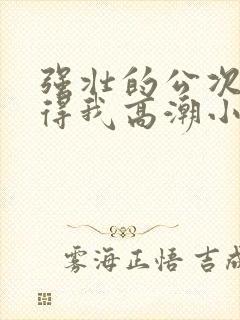 强壮的公次
得我高潮小
雾海正悟 吉成